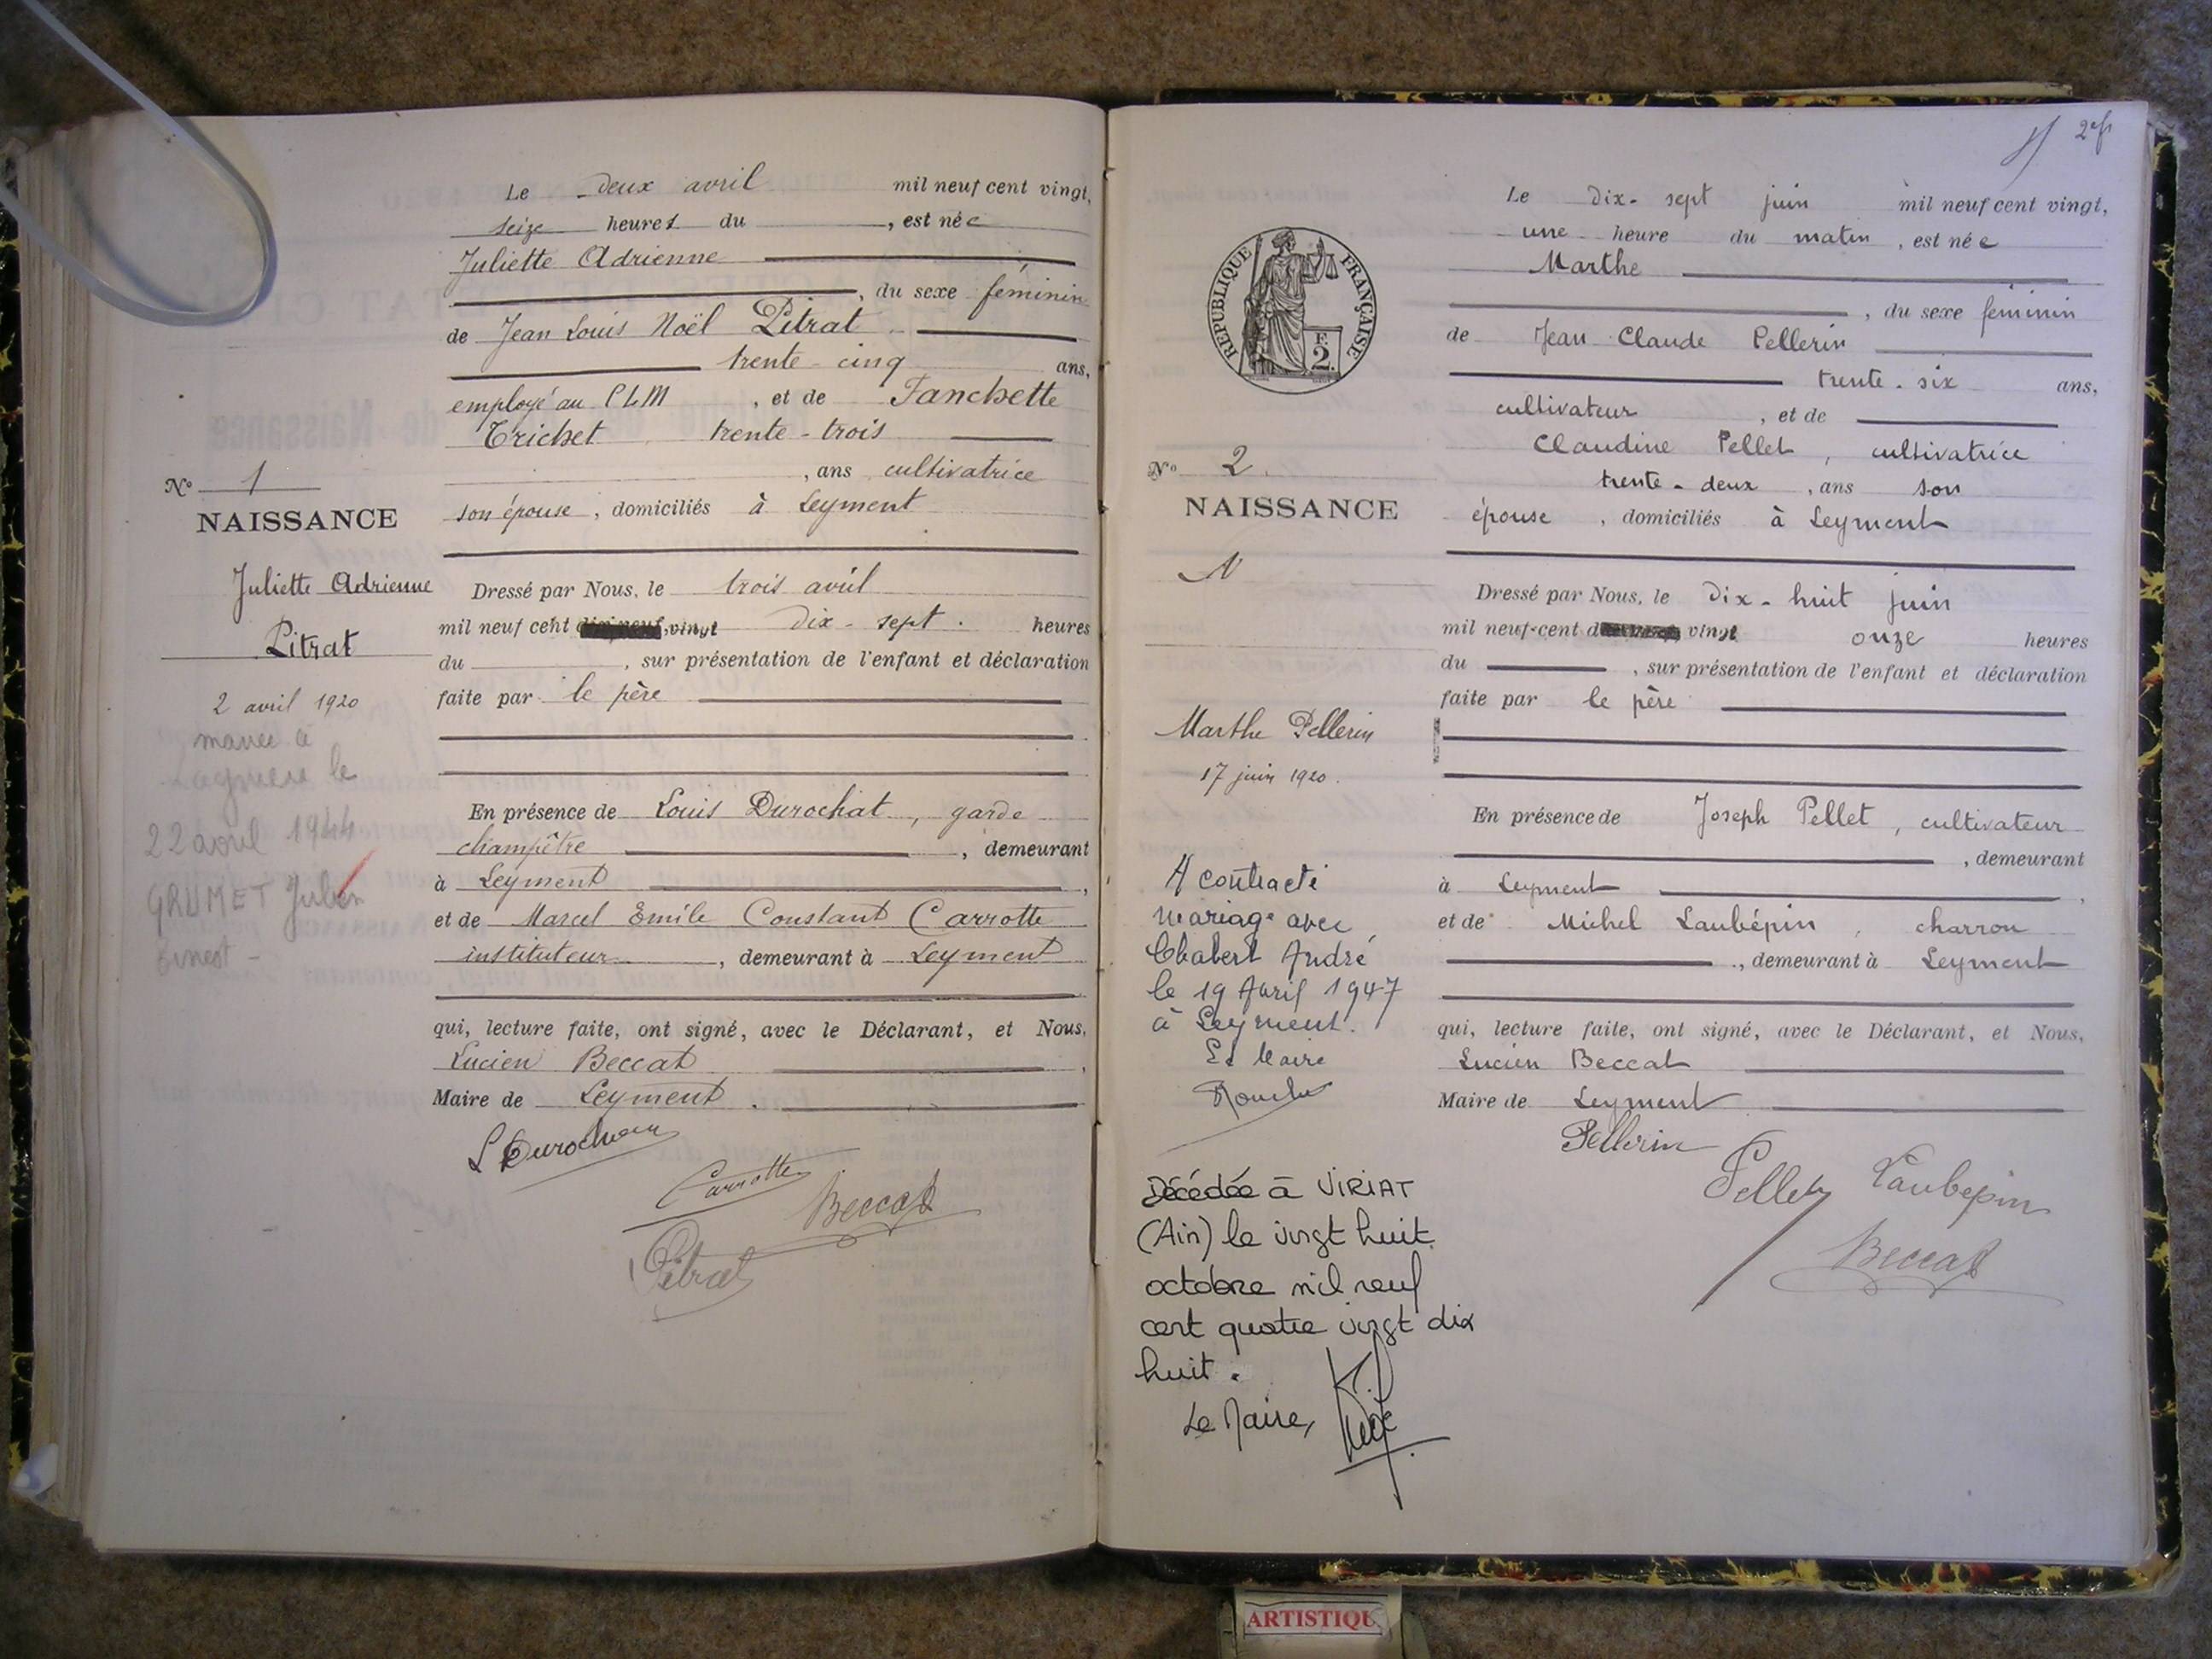 Le deux avril mil neuf cent vingt,
seize heures du , est née
Juliette Adrienne
, du sexe féminin
de Jean Louis Noël Pitrat
trente-cinq ans,
employé au PLM , et de Fanchette
Trichet trente-trois
, ans cultivatrice
son épouse , domiciliés à Leyment
Nº 1
NAISSANCE
Juliette Adrienne
Pitrat
2 avril 1920
mariée à
le
22 avril 1944
GRUMET Julien
Ernest -
Dressé par Nous, le trois avril
mil neuf cent vingt dix-sept. heures
du , sur présentation de l'enfant et déclaration
faite par le père
En présence de Louis Durochat, garde
champêtre , demeurant
à Leyment ,
et de Marcel Emile Constant Carrotte
instituteur , demeurant à Leyment
qui, lecture faite, ont signé, avec le Déclarant, et Nous,
Lucien Beccat ,
Maire de Leyment .
L Durochat
Carrotte
Beccat
Pitrat
2
Le dix-sept juin mil neuf cent vingt,
une heure du matin , est née
Marthe
, du sexe féminin
de Jean Claude Pellerin
trente-six ans,
cultivateur , et de
Claudine Pellet, cultivatrice
trente-deux , ans son
épouse , domiciliés à Leyment
REPUBLIQUE FRANÇAISE
F.
2.
Nº 2.
NAISSANCE
N
Marthe Pellerin
17 juin 1920.
A contracté
mariage avec
Chabert André
le 19 Avril 1947
à Leyment.
Le Maire
Décédée à VIRIAT
(Ain) le vingt huit
octobre mil neuf
cent quatre vingt dix
huit.
Le Maire,
Dressé par Nous, le dix-huit juin
mil neuf cent vingt onze heures
du , sur présentation de l'enfant et déclaration
faite par le père
En présence de Joseph Pellet, cultivateur
, demeurant
à Leyment ,
et de Michel Laubépin, charron
, demeurant à Leyment
qui, lecture faite, ont signé, avec le Déclarant, et Nous,
Lucien Beccat
Maire de Leyment
Pellerin
Pellet Laubépin
Beccat
ARTISTIQU